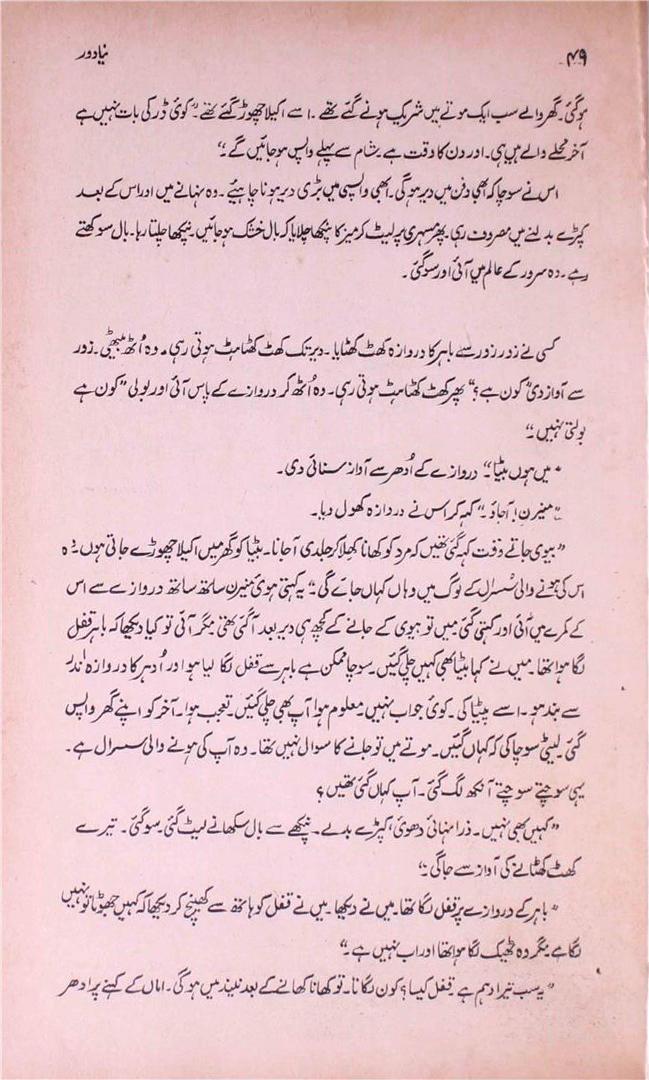 ۴۹ نیا دور
ہوگئی۔ گھر والے سب ایک موتے میں شریک ہونے گئے تھے۔ اسے اکیلا چھوڑ گئے تھے۔ "کوئی ڈر کی بات نہیں ہے
آخر محلے والے ہیں ہی۔ اور دن کا وقت ہے شام سے پہلے واپس ہو جائیں گے۔"
اس نے سوچا کہ بھی دفن میں دیر ہوگی۔ بھی واپسی میں بڑی دیر ہونا چاہیئے۔ وہ نہانے میں اور اس کے بعد
کپڑے بدلنے میں مصروف رہی۔ پھر مسہری پر لیٹ کر میز کا پنکھا چلایا کہ بال خشک ہو جائیں۔ پنکھا چلتا رہا۔ بال سوکھتے
رہے۔ وہ سرور کے عالم میں آئی اور سوگئی۔
کسی نے زور زور سے باہر کا دروازہ کھٹ کھٹایا۔ دیر تک کھٹ کھٹاہٹ ہوتی رہی۔ وہ اُٹھ بیٹھی۔ زور
سے آواز دی "کون ہے؟" پھر کھٹ کھٹاہٹ ہوتی رہی۔ وہ اُٹھ کر دروازے کے پاس آئی اور بولی "کون ہے
بولتی نہیں۔"
"میں ہوں بٹیا۔" دروازے کے اُدھر سے آواز سنائی دی۔
"منیرن! آجاؤ۔" کہہ کر اس نے دروازہ کھول دیا۔
"بیوی جاتے وقت کہہ گئی تھیں کہ مرد کو کھانا کھلا کر جلدی آجانا۔ بٹیا کو گھر میں اکیلا چھوڑے جاتی ہوں۔ وہ
اس کی ہونے والی سُسرال کے لوگ ہیں وہاں کہاں جائے گی۔" یہ کہتی ہوئی منیرن ساتھ ساتھ دروازے سے اس
کے کمرے میں آئی اور کہتی گئی میں تو بیوی کے جانے کے کچھ ہی دیر بعد آگئی تھی مگر آئی تو کیا دیکھا کہ باہر قفل
لگا ہوا تھا۔ میں نے کہا بٹیا بھی کہیں چلی گئیں۔ سوچا ممکن ہے باہر سے قفل لگا لیا ہو اور اُدہر کا دروازہ اندر
سے بند ہو۔ اسے پیٹا کی۔ کوئی جواب نہیں۔ معلوم ہوا آپ بھی چلی گئیں۔ تعجب ہوا۔ آخر کو اپنے گھر واپس
گئی۔ لیٹی سوچا کی کہ کہاں گئیں۔ موتے میں تو جانے کا سوال نہیں تھا۔ وہ آپ کی ہونے والی سسرال ہے۔
یہی سوچتے سوچتے آنکھ لگ گئی۔ آپ کہاں گئی تھیں؟
"کہیں بھی نہیں۔ ذرا نہائی دھوئی، کپڑے بدلے۔ پنکھے سے بال سکھانے لیٹ گئی۔ سوگئی۔ تیرے
کھٹ کھٹانے کی آواز سے جاگی۔"
"باہر کے دروازے پر قفل لگا تھا۔ میں نے دیکھا۔ میں نے قفل کو ہاتھ سے کھینچ کر دیکھا کہ کہیں جھوٹا تو نہیں
لگا ہے مگر وہ ٹھیک لگا ہوا تھا اور اب نہیں ہے۔"
"یہ سب تیرا وہم ہے۔ قفل کیسا؟ کون لگاتا۔ تو کھانا کھانے کے بعد نیند میں ہوگی۔ اماں کے کہنے پر ادھر